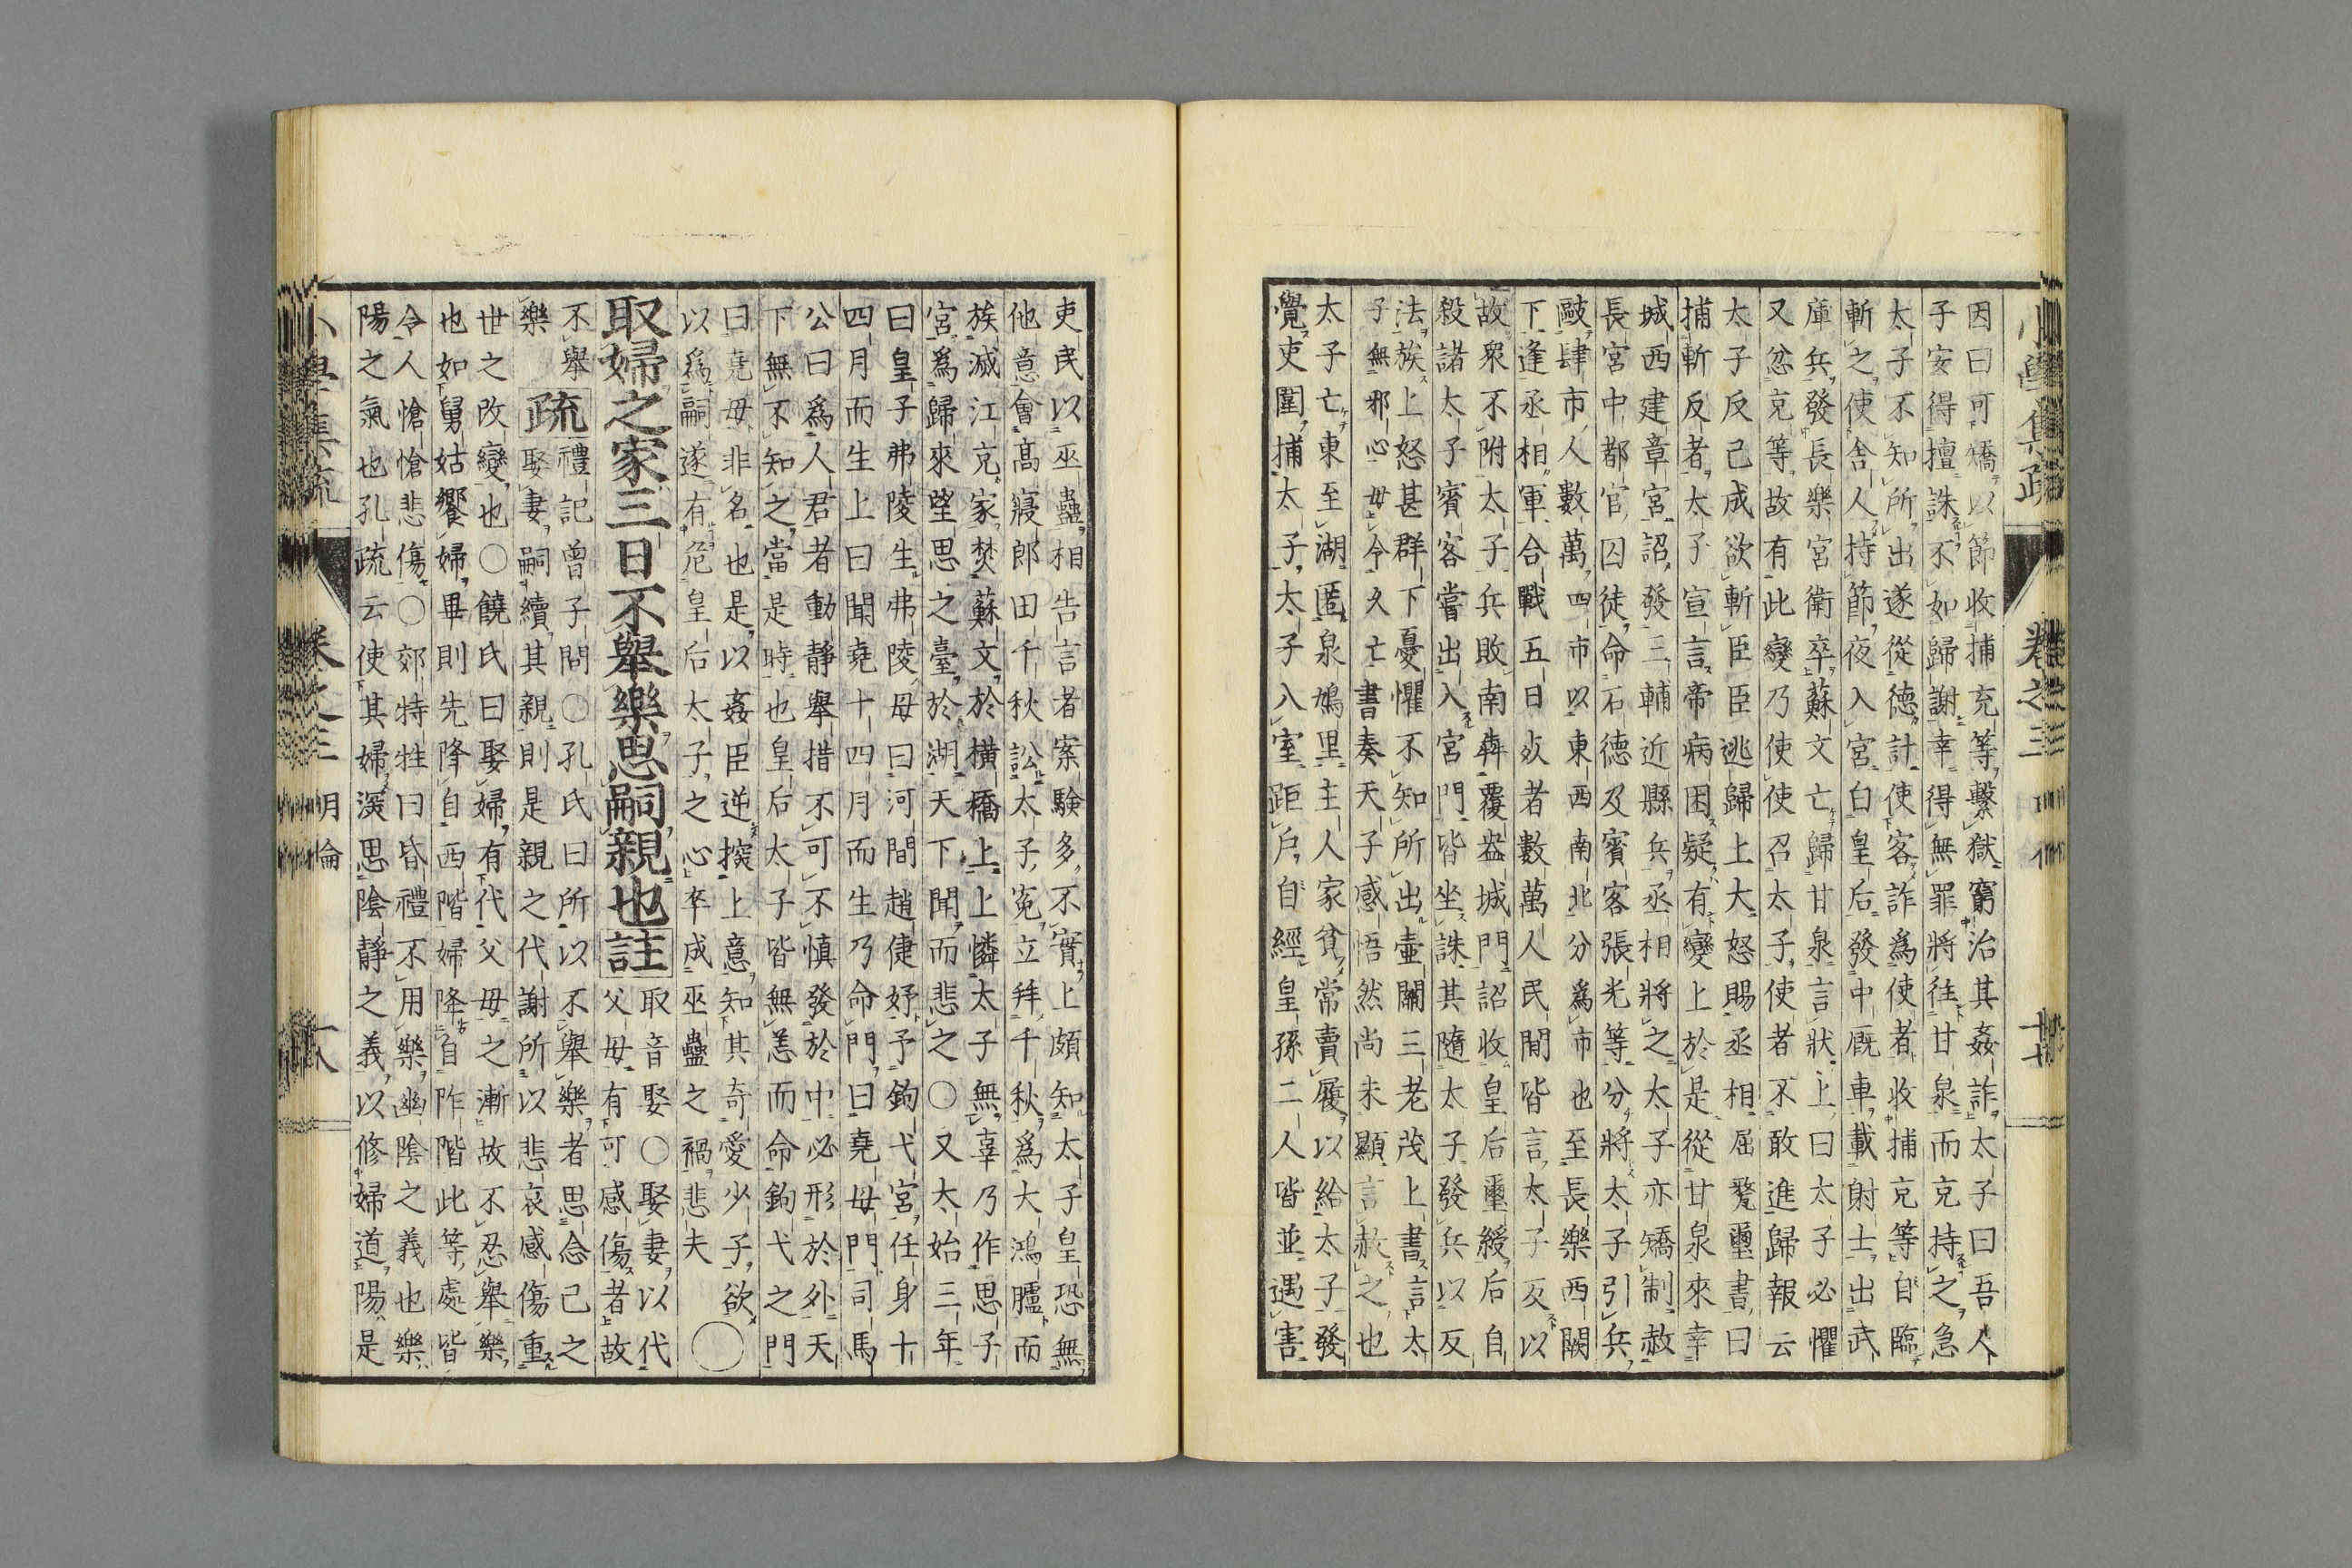 因曰可矯以節收捕充等繫獄窮治其姦詐太子曰吾人
子安得擅誅不如歸謝幸得無罪將往甘泉而充持之急
太子不知所出遂從德計使客詐為使者收捕充等自臨
斬之使舍人持節夜入宮白皇后發中厩車載射士出武
庫兵發長樂宮衛卒蘇文亡歸甘泉言狀上曰太子必懼
又忿充等故有此變乃使使召太子使者不敢進歸報云
太子反己成欲斬臣臣逃歸上大怒賜丞相屈氂璽書曰
捕斬反者太子宣言帝病困疑有變上於是從甘泉來幸
城西建章宮詔發三輔近縣兵丞相將之太子亦矯制赦
長宮中都官囚徒命石德及賓客張光等分將太子引兵
敺肆市人數萬四市以東西南北分為市也至長樂西闕
下逢丞相軍合戰五日死者數萬人民間皆言太子反以
故衆不附太子兵敗南犇覆盎城門詔收皇后璽綬后自
殺諸太子賓客嘗出入宮門皆坐誅其隨太子發兵以反
法族上怒甚群下憂懼不知所出壷關三老茂上書言太
子無邪心毋令久亡書奏天子感悟然尚未顯言赦之也
太子亡東至湖匿泉鳩里主人家貧常賣履以給太子發
覺吏圍捕太子太子入室距戶自經皇孫二人皆並遇害
小學集疏 卷之三 明倫 十七
吏民以巫蠱相告言者案驗多不實上頗知太子皇恐無
他意會高寢郎田千秋訟太子冤立拜千秋為大鴻臚而
族滅江充家焚蘇文於橫橋上上憐太子無辜乃作思子
宮為歸來望思之臺於湖天下聞而悲之〇又太始三年
曰皇子弗陵生弗陵母曰河間趙倢妤予鉤弋宮任身十
四月而生上曰聞堯十四月而生乃命門曰堯母門司馬
公曰為人君者動靜舉措不可不慎發於中必形於外天
下無不知之當是時也皇后太子皆無恙而命鉤弋之門
曰堯母非名也是以姦臣逆探上意知其奇愛少子欲
以為嗣遂有危皇后太子之心卒成巫蠱之禍悲夫〇
取婦之家三日不舉樂思嗣親也 註
取音娶〇娶妻以代
父母有可感傷者故
不舉
樂
疏
禮記曾子問〇孔氏曰所以不舉樂者思念己之
娶妻嗣續其親則是親之代謝所以悲哀感傷重
世之改變也〇饒氏曰娶婦有代父母之漸故不忍舉樂
也如舅姑饗婦畢則先降自西階婦降自阼階此等處皆
令人愴愴悲傷〇郊特牲曰昏禮不用樂幽陰之義也樂
陽之氣也孔疏云使其婦深思陰靜之義以修婦道陽是
小學集疏 卷之三 明倫 十八